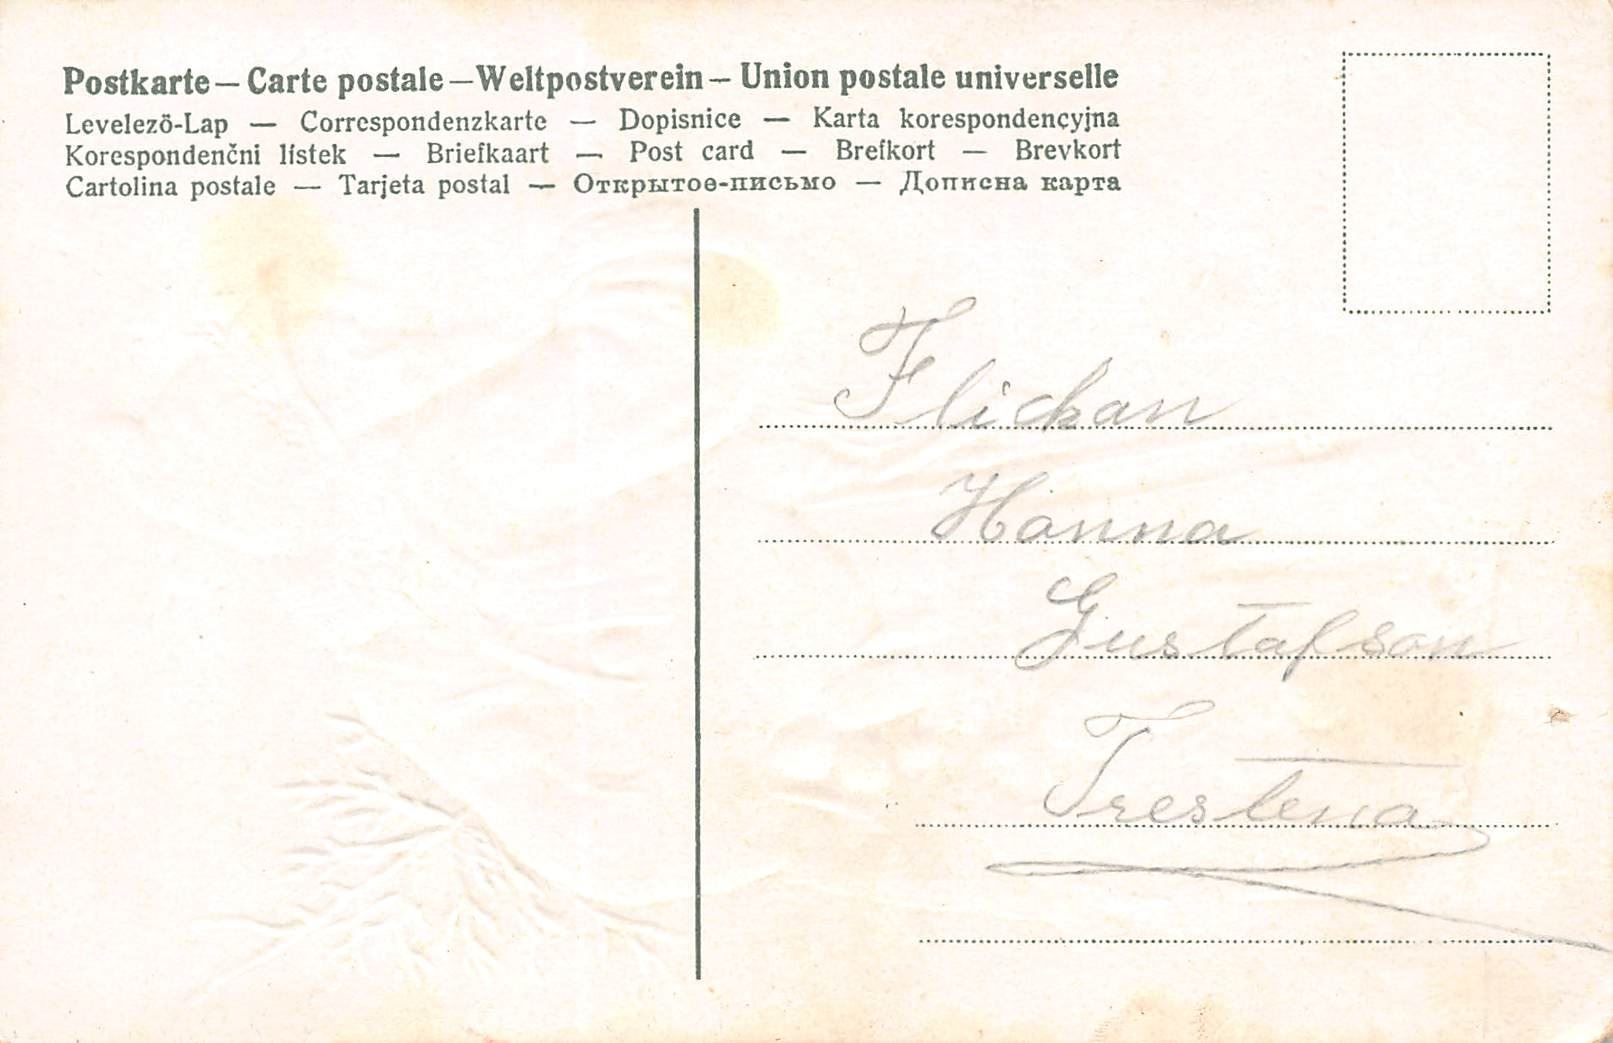 Postkarte — Carte postale — Weltpostverein — Union postale universelle
Levelezö-Lap — Correspondenzkarte — Dopisnice — Karta korespondencyjna
Korespondenčni lístek — Briefkaart — Post card — Brefkort — Brevkort
Cartolina postale — Tarjeta postal — Открытое-письмо — Дописна карта
Flickan
Hanna
Gustafson
Trestena